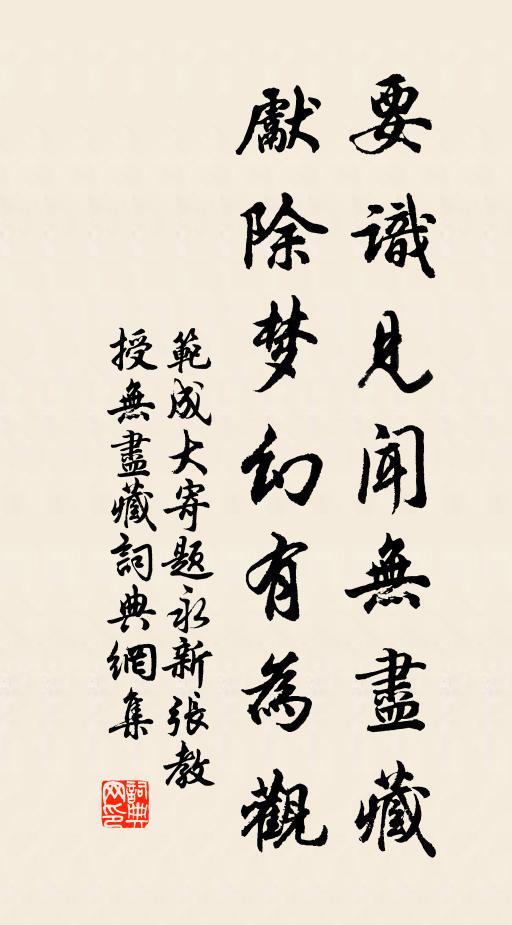 要識見聞無盡藏
獻除梦幻有為觀
範成大寄题永新張教
授無盡藏詞典網集
詞典
网印